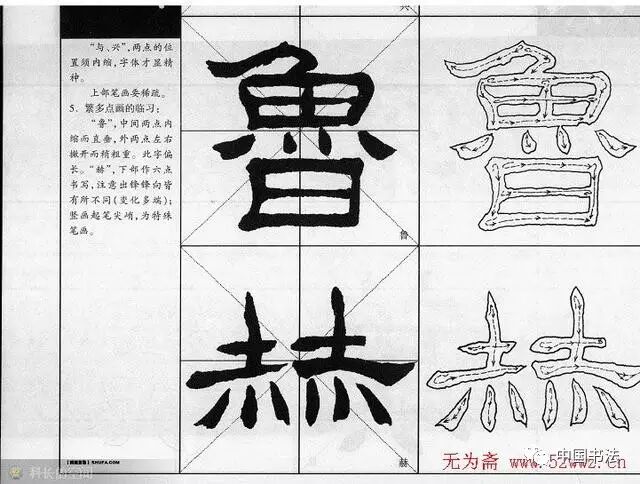 兴
"与、兴",两点的位
置须内缩,字体才显精
神。
上部笔画要稀疏。
5. 繁多点画的临习:
"鲁",中间两点内
缩而直垂,外两点左右
撇开而稍粗重。此字偏
长。"赫",下部作六点
书写,注意出锋锋向皆
有所不同(变化多端);
竖画起笔尖峭,为特殊
笔画。
魯
鲁
赫
赫
SHUFA.COM
科长的空间
中国书法
无为斋 www.52wwz.cn